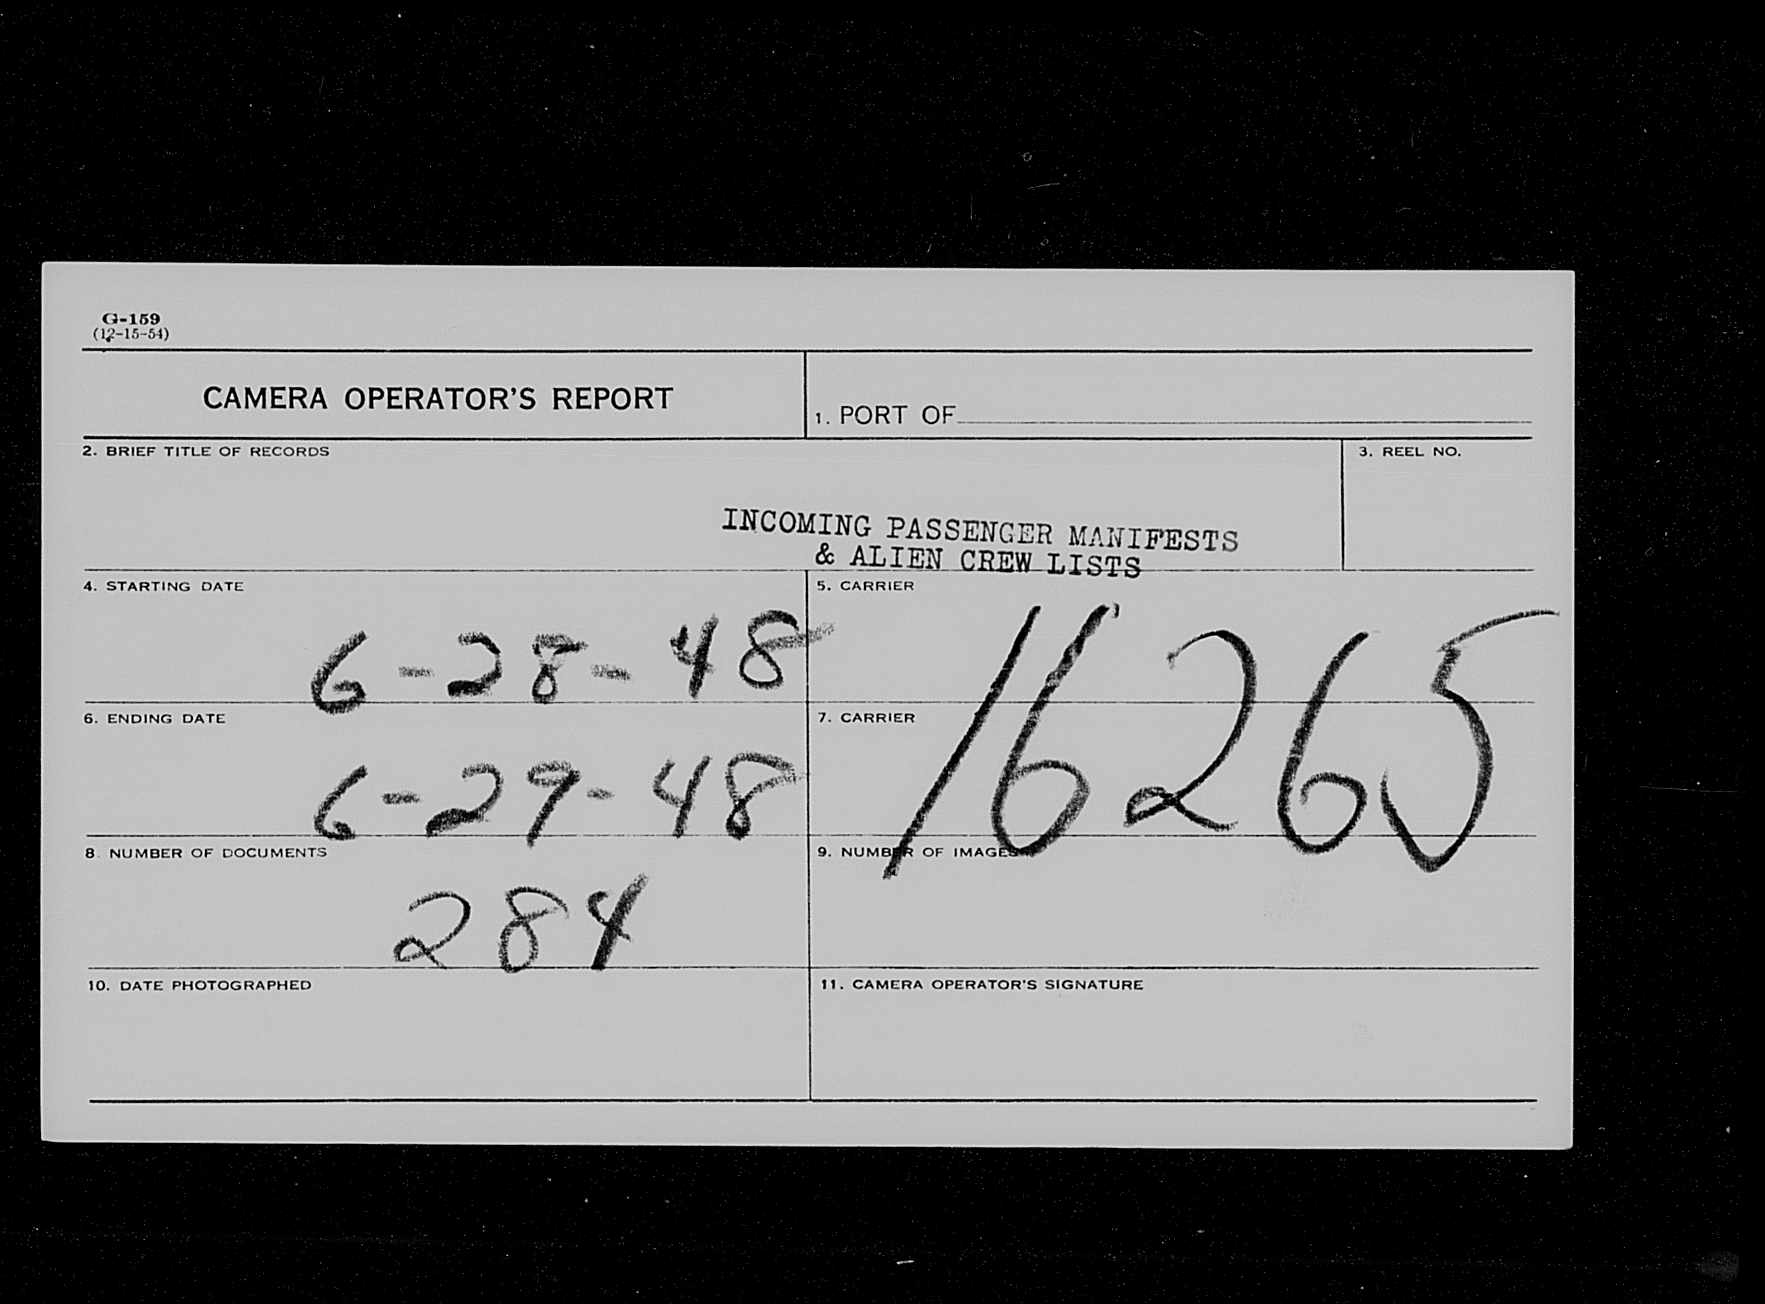 G-159
(12-15-54)
CAMERA OPERATOR'S REPORT
1. PORT OF
2. BRIEF TITLE OF RECORDS
3. REEL NO.
INCOMING PASSENGER MANIFESTS
& ALIEN CREW LISTS
4. STARTING DATE
6-28-48
5. CARRIER
16265
6. ENDING DATE
6-29-48
7. CARRIER
8. NUMBER OF DOCUMENTS
284
9. NUMBER OF IMAGES
10. DATE PHOTOGRAPHED
11. CAMERA OPERATOR'S SIGNATURE